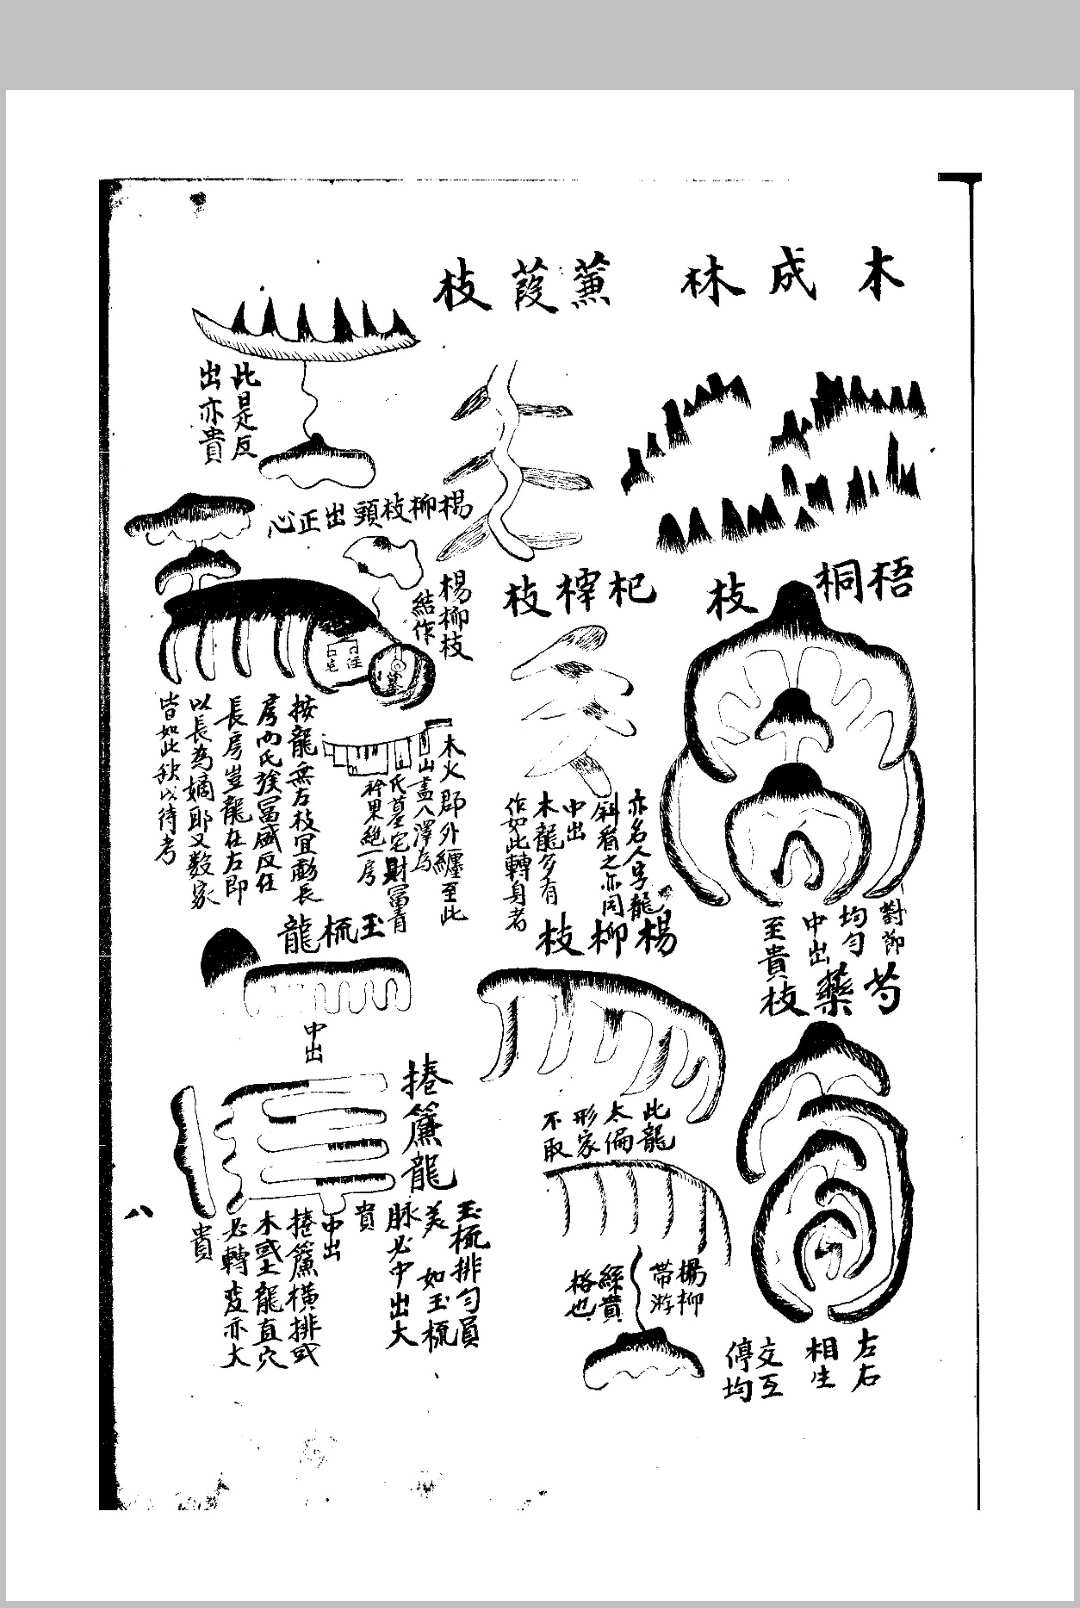 木成林
蒹葭枝
梧桐枝
對節
均勻
中出
至貴
芍藥枝
左右
相生
交互
停均
杞梓枝
亦名人字龍
斜看之亦同
中出
木龍多有
作如此轉身者
楊柳枝
此龍
太偏
形家
不取
楊柳
帶游
絲貴
格也
此是反
出亦貴
楊柳枝頭出正心
楊柳枝
結作
木火郡外纏至此
山盡八澤為
氏墓宅財冨青
一房
按龍無左枝宜
房而氏族冨盛反在
長房豈龍在左即
以長為嫡耶又数家
皆如此秋以待考
玉梳龍
中出
捲簾龍
玉梳排勻員
美 如玉梳
脉必中出大
貴
中出
捲簾橫排或
木或土龍直穴
必轉変亦大
貴
八